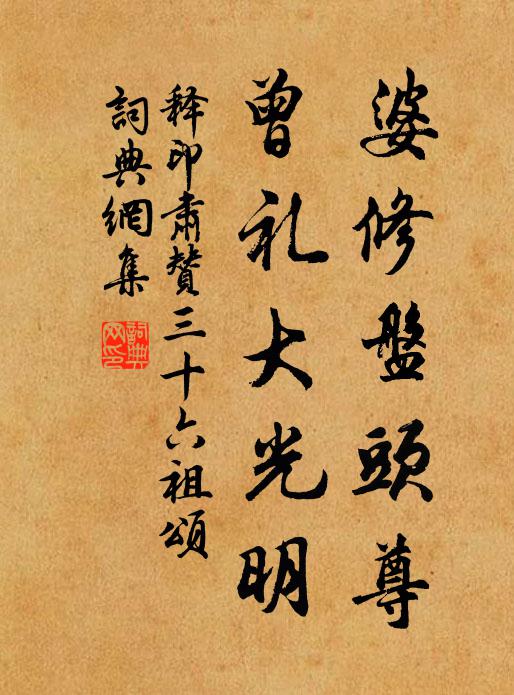 婆修盤頭尊
曾礼大光明
释印肅贊三十六祖頌
詞典網集
詞典
网印